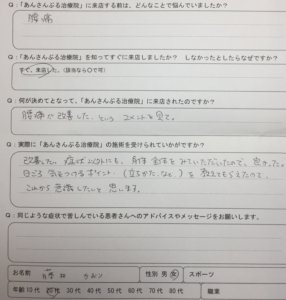 Q：「あんさんぶる治療院」に来店する前は、どんなことで悩んでいましたか？
腰痛
Q：「あんさんぶる治療院」を知ってすぐに来店しましたか？ しなかったとしたらなぜですか？
すぐ、来店した。（該当なら○で可）
Q：何が決めてとなって、「あんさんぶる治療院」に来店されたのですか？
腰痛が改善した、という コメントを見て。
Q：実際に「あんさんぶる治療院」の施術を受けられていかがですか？
改善した。症状以外にも、身体全体をみていただいたので、良かった。
日ごろ気をつけるポイント（立ちかた、など。）を教えてもらえたので、
これから意識したいと思います。
Q：同じような症状で苦しんでいる患者さんへのアドバイスやメッセージをお願いします。
お名前 藤井 性別 男 女 スポーツ
年齢 10代 20代 30代 40代 50代 60代 70代 80代 職業